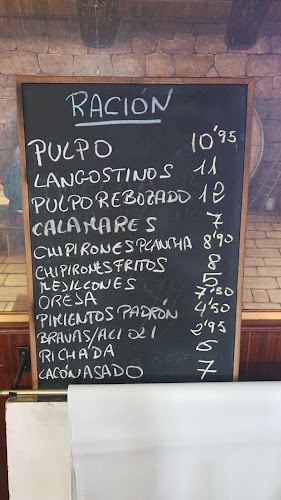 RACIÓN
PULPO 10'95
LANGOSTINOS 11
PULPO REBOZADO 12
CALAMARES 7
CHIPIRONES PLANCHA 8'90
CHIPIRONES FRITOS 8
MEJILLONES 5
OREJA 7'50
PIMIENTOS PADRÓN 4'50
BRAVAS/ALIOLI 2'95
RICHADA 6
LACÓN ASADO 7